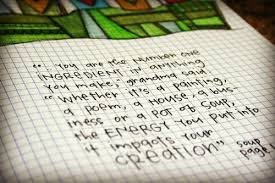 "You are the number one
INGREDIENT in anything
You make, grandma said.
"Whether it's a painting,
a poem, a House, a bus-
iness or a pot of soup,
the ENERGY you put into
it impacts your
creation" soup
page.